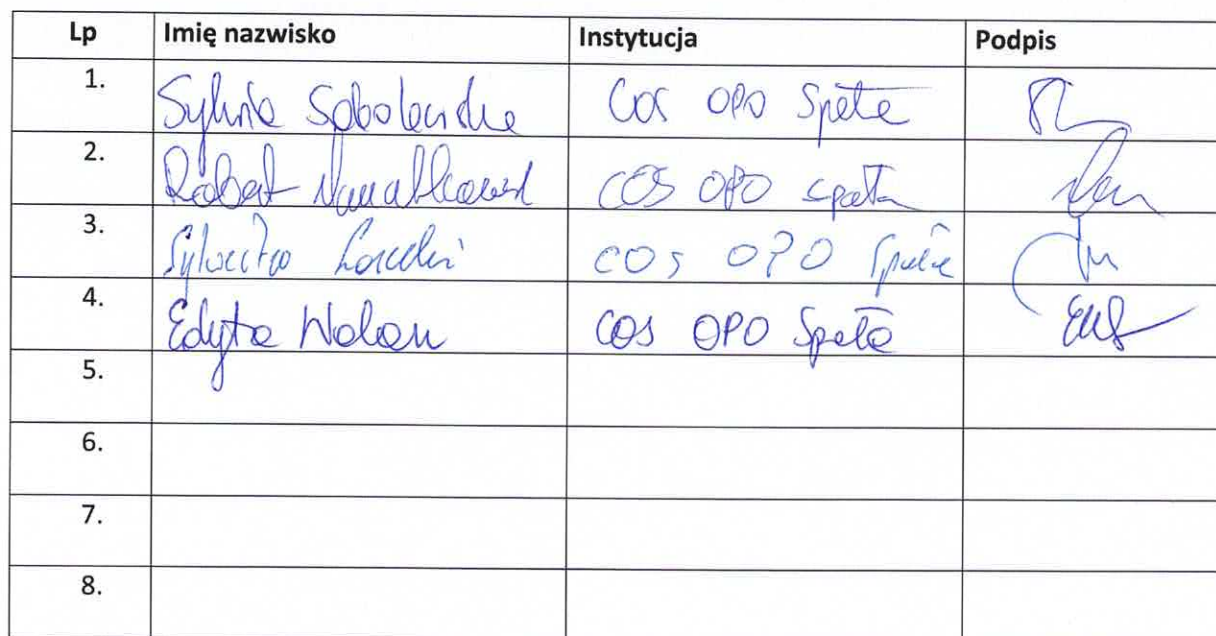 Lp Imię nazwisko Instytucja Podpis
1. Sylwia Sobolewska COS OPO Spała
2. Robert COS OPO Spała
3. COS OPO Spała
4. Edyta Wolan COS OPO Spała
5.
6.
7.
8.